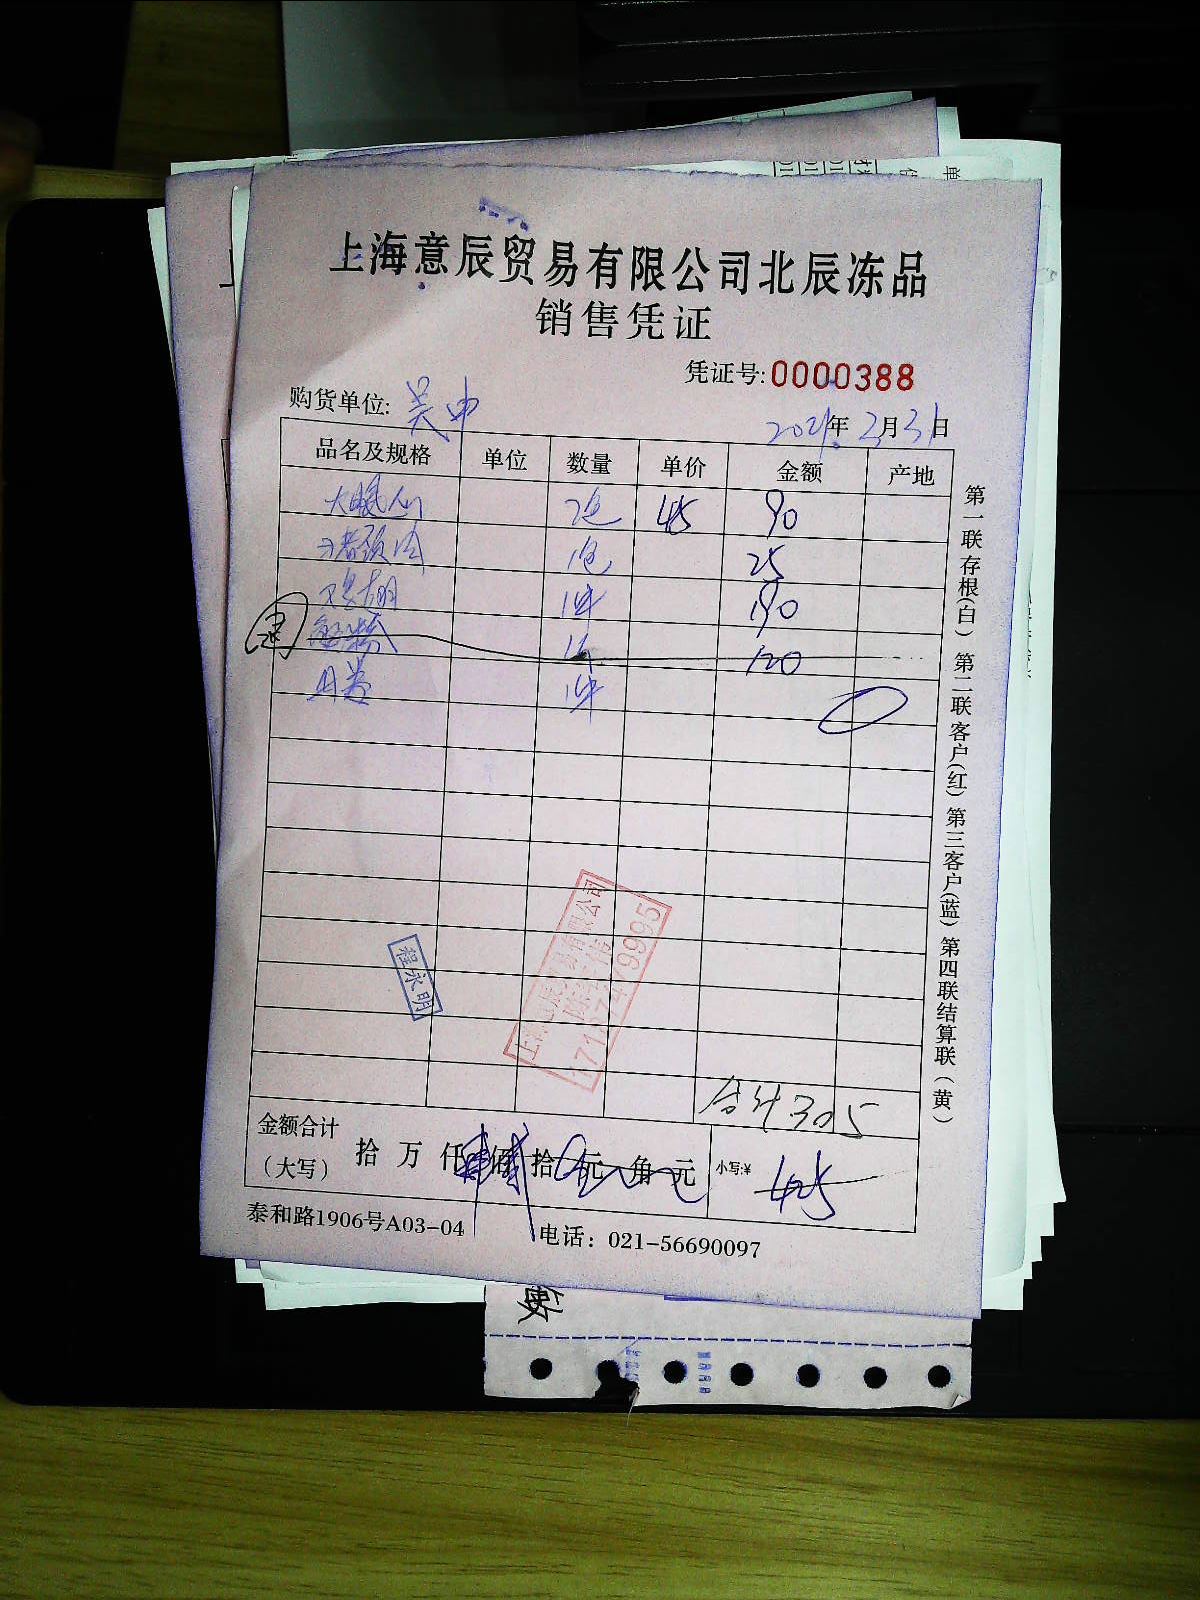 上海意辰贸易有限公司北辰冻品
销售凭证
凭证号:0000388
购货单位: 吴中
2021年3月31日
品名及规格 单位 数量 单价 金额 产地
2包 45 90
1包 25
1件 190
退 120
1件
合计305
金额合计
(大写)
拾 万 仟 佰 拾 元 角 元
小写:¥ 425
泰和路1906号A03-04
电话：021-56690097
第一联存根(白) 第二联客户(红) 第三客户(蓝) 第四联结算联(黄)
程永明